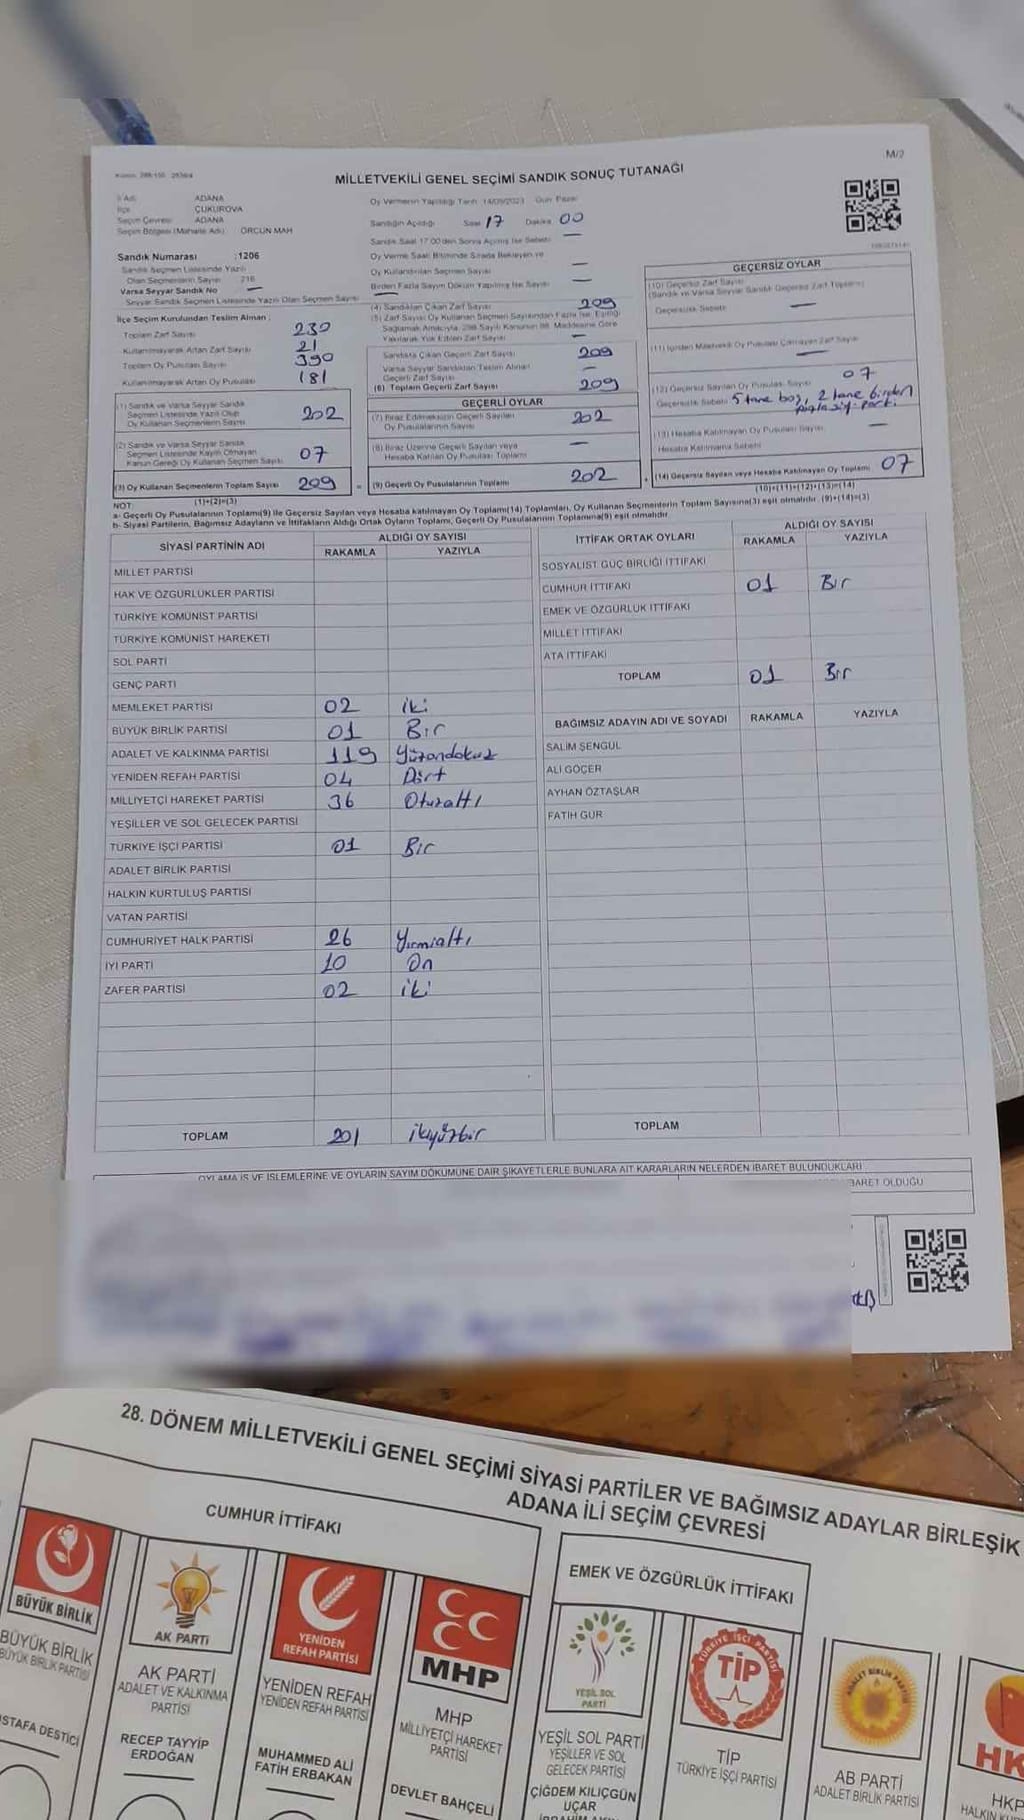 M/2
MİLLETVEKİLİ GENEL SEÇİMİ SANDIK SONUÇ TUTANAĞI
İl Adı ADANA
İlçe ÇUKUROVA
Seçim Çevresi ADANA
Seçim Bölgesi (Mahalle Adı) ORCUN MAH
Sandık Numarası :1206
Sandık Seçmen Listesinde Yazılı
Olan Seçmenlerin Sayısı 216
Varsa Seyyar Sandık No —
Seyyar Sandık Seçmen Listesinde Yazılı Olan Seçmen Sayısı —
İlçe Seçim Kurulundan Teslim Alınan :
Toplam Zarf Sayısı 230
Kullanılmayarak Artan Zarf Sayısı 21
Toplam Oy Pusulası Sayısı 390
Kullanılmayarak Artan Oy Pusulası 181
(1) Sandık ve Varsa Seyyar Sandık
Seçmen Listesinde Yazılı Olup
Oy Kullanan Seçmenlerin Sayısı 202
(2) Sandık ve Varsa Seyyar Sandık
Seçmen Listesinde Kayıtlı Olmayan
Kanun Gereği Oy Kullanan Seçmen Sayısı 07
(3) Oy Kullanan Seçmenlerin Toplam Sayısı 209
(1)+(2)=(3)
Oy Vermenin Yapıldığı Tarih 14/05/2023 Gün Pazar
Sandığın Açıldığı Saat 17 Dakika 00
Sandık Saat 17:00'den Sonra Açılmış İse Sebebi —
Oy Verme Saati Bitiminde Sırada Bekleyen ve
Oy Kullandırılan Seçmen Sayısı —
Birden Fazla Sayım Döküm Yapılmış İse Sayısı —
(4) Sandıktan Çıkan Zarf Sayısı 209
(5) Zarf Sayısı Oy Kullanan Seçmen Sayısından Fazla İse, Eşitliği
Sağlamak Amacıyla, 298 Sayılı Kanunun 98. Maddesine Göre
Yakılarak Yok Edilen Zarf Sayısı —
Sandıkta Çıkan Geçerli Zarf Sayısı 209
Varsa Seyyar Sandıktan Teslim Alınan
Geçerli Zarf Sayısı —
(6) Toplam Geçerli Zarf Sayısı 209
GEÇERLİ OYLAR
(7) İtiraz Edilmeksizin Geçerli Sayılan
Oy Pusulalarının Sayısı 202
(8) İtiraz Üzerine Geçerli Sayılan veya
Hesaba Katılan Oy Pusulası Toplamı —
(9) Geçerli Oy Pusulalarının Toplamı 202
GEÇERSİZ OYLAR
(10) Geçersiz Zarf Sayısı
(Sandık ve Varsa Seyyar Sandık Geçersiz Zarf Toplamı)
Geçersizlik Sebebi —
(11) İçinden Milletvekili Oy Pusulası Çıkmayan Zarf Sayısı —
(12) Geçersiz Sayılan Oy Pusulası Sayısı 07
Geçersizlik Sebebi 5 tane boş, 2 tane birden
fazla parti
(13) Hesaba Katılmayan Oy Pusulası Sayısı —
Hesaba Katılmama Sebebi
(14) Geçersiz Sayılan veya Hesaba Katılmayan Oy Toplamı 07
(10)+(11)+(12)+(13)=(14)
NOT:
a- Geçerli Oy Pusulalarının Toplamı(9) ile Geçersiz Sayılan veya Hesaba Katılmayan Oy Toplamı(14) Toplamları, Oy Kullanan Seçmenlerin Toplam Sayısına(3) eşit olmalıdır. (9)+(14)=(3)
b- Siyasi Partilerin, Bağımsız Adayların ve İttifakların Aldığı Ortak Oyların Toplamı, Geçerli Oy Pusulalarının Toplamına(9) eşit olmalıdır.
SİYASİ PARTİNİN ADI ALDIĞI OY SAYISI
RAKAMLA YAZIYLA
MİLLET PARTİSİ
HAK VE ÖZGÜRLÜKLER PARTİSİ
TÜRKİYE KOMÜNİST PARTİSİ
TÜRKİYE KOMÜNİST HAREKETİ
SOL PARTİ
GENÇ PARTİ
MEMLEKET PARTİSİ 02 iki
BÜYÜK BİRLİK PARTİSİ 01 Bir
ADALET VE KALKINMA PARTİSİ 119 Yüzondokuz
YENİDEN REFAH PARTİSİ 04 Dört
MİLLİYETÇİ HAREKET PARTİSİ 36 Otuzaltı
YEŞİLLER VE SOL GELECEK PARTİSİ
TÜRKİYE İŞÇİ PARTİSİ 01 Bir
ADALET BİRLİK PARTİSİ
HALKIN KURTULUŞ PARTİSİ
VATAN PARTİSİ
CUMHURİYET HALK PARTİSİ 26 Yirmialtı
İYİ PARTİ 10 On
ZAFER PARTİSİ 02 iki
TOPLAM 201 ikiyüzbir
İTTİFAK ORTAK OYLARI ALDIĞI OY SAYISI
RAKAMLA YAZIYLA
SOSYALİST GÜÇ BİRLİĞİ İTTİFAKI
CUMHUR İTTİFAKI 01 Bir
EMEK VE ÖZGÜRLÜK İTTİFAKI
MİLLET İTTİFAKI
ATA İTTİFAKI
TOPLAM 01 Bir
BAĞIMSIZ ADAYIN ADI VE SOYADI RAKAMLA YAZIYLA
SALİM ŞENGÜL
ALİ GÖÇER
AYHAN ÖZTAŞLAR
FATİH GÜR
TOPLAM
OYLAMA İŞ VE İŞLEMLERİNE VE OYLARIN SAYIM DÖKÜMÜNE DAİR ŞİKAYETLERLE BUNLARA AİT KARARLARIN NELERDEN İBARET BULUNDUKLARI
BARET OLDUĞU
28. DÖNEM MİLLETVEKİLİ GENEL SEÇİMİ SİYASİ PARTİLER VE BAĞIMSIZ ADAYLAR BİRLEŞİK
ADANA İLİ SEÇİM ÇEVRESİ
CUMHUR İTTİFAKI
EMEK VE ÖZGÜRLÜK İTTİFAKI
BÜYÜK BİRLİK
BÜYÜK BİRLİK
BÜYÜK BİRLİK PARTİSİ
STAFA DESTİCİ
AK PARTİ
AK PARTİ
ADALET VE KALKINMA
PARTİSİ
RECEP TAYYİP
ERDOĞAN
YENİDEN
REFAH PARTİSİ
YENİDEN REFAH
YENİDEN REFAH PARTİSİ
MUHAMMED ALİ
FATİH ERBAKAN
MHP
MHP
MİLLİYETÇİ HAREKET
PARTİSİ
DEVLET BAHÇELİ
YEŞİL SOL
PARTİ
YEŞİL SOL PARTİ
YEŞİLLER VE SOL
GELECEK PARTİSİ
ÇİĞDEM KILIÇGÜN
UÇAR
TÜRKİYE İŞÇİ PARTİSİ
TİP
TİP
TÜRKİYE İŞÇİ PARTİSİ
ADALET BİRLİK PARTİSİ
AB PARTİ
ADALET BİRLİK PARTİSİ
HK
HKP
HALKIN KU